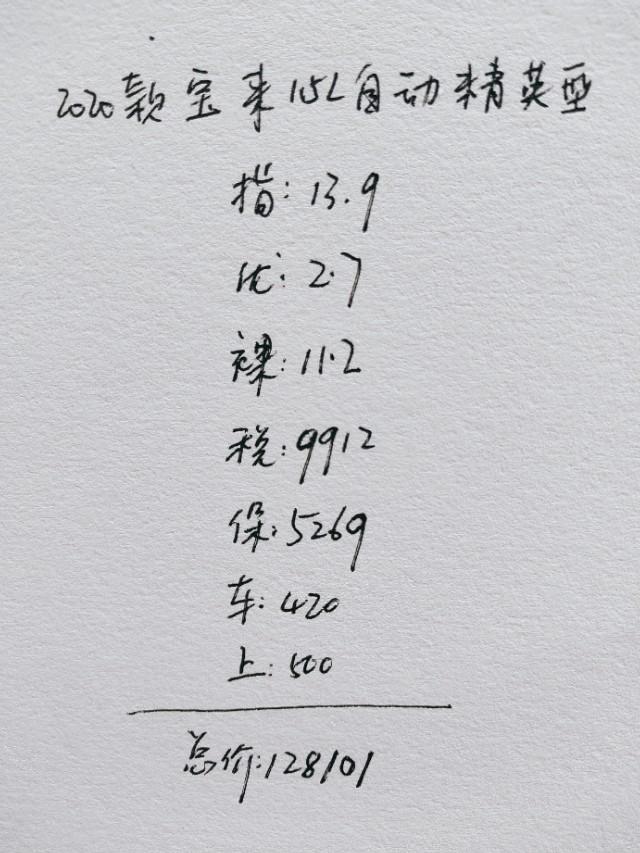 2020款宝来15L自动精英型
指:13.9
优:2.7
裸:11.2
税:9912
保:5269
车:420
上:500
总价:128101